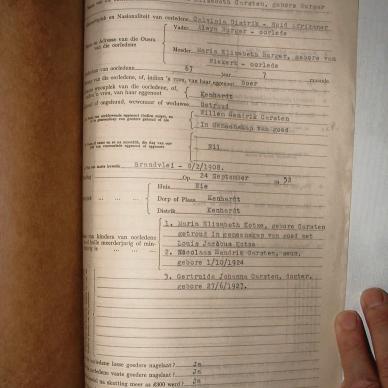 Elizabeth Carsten, gebore Burger
en Nasionaliteit van oorledene Calvinia Distrik - Suid Afrikaner
Vader Alewyn Burger - oorlede
Adresse van die Ouers
van die oorledene
Moeder Maria Elizabeth Burger, gebore van
Niekerk - oorlede
van oorledene 67 jaar 7 maande
van die oorledene, of, indien 'n vrou, van haar eggenoot Boer
woonplek van die oorledene, of,
indien 'n vrou, van haar eggenoot Kenhardt
of ongehuud, wewenaar of weduwee Getroud
Willem Hendrik Carsten
In Gemeenskap van goed
Nil
Brandvlei - 8/2/1908.
Op 24 September 1953
Huis Nie
Dorp of Plaas Kenhardt
Distrik Kenhardt
van kinders van oorledene
1. Maria Elizabeth Kotze, gebore Carsten
getroud in gemeenskap van goed met
Louis Jacobus Kotze
2. Nicolaas Hendrik Carsten, seun,
gebore 1/10/1924
3. Gertruida Johanna Carsten, dogter,
gebore 27/6/1927.
oorledene losse goedere nagelaat? Ja
oorledene vaste goedere nagelaat? Ja
na skatting meer as £300 werd? Ja